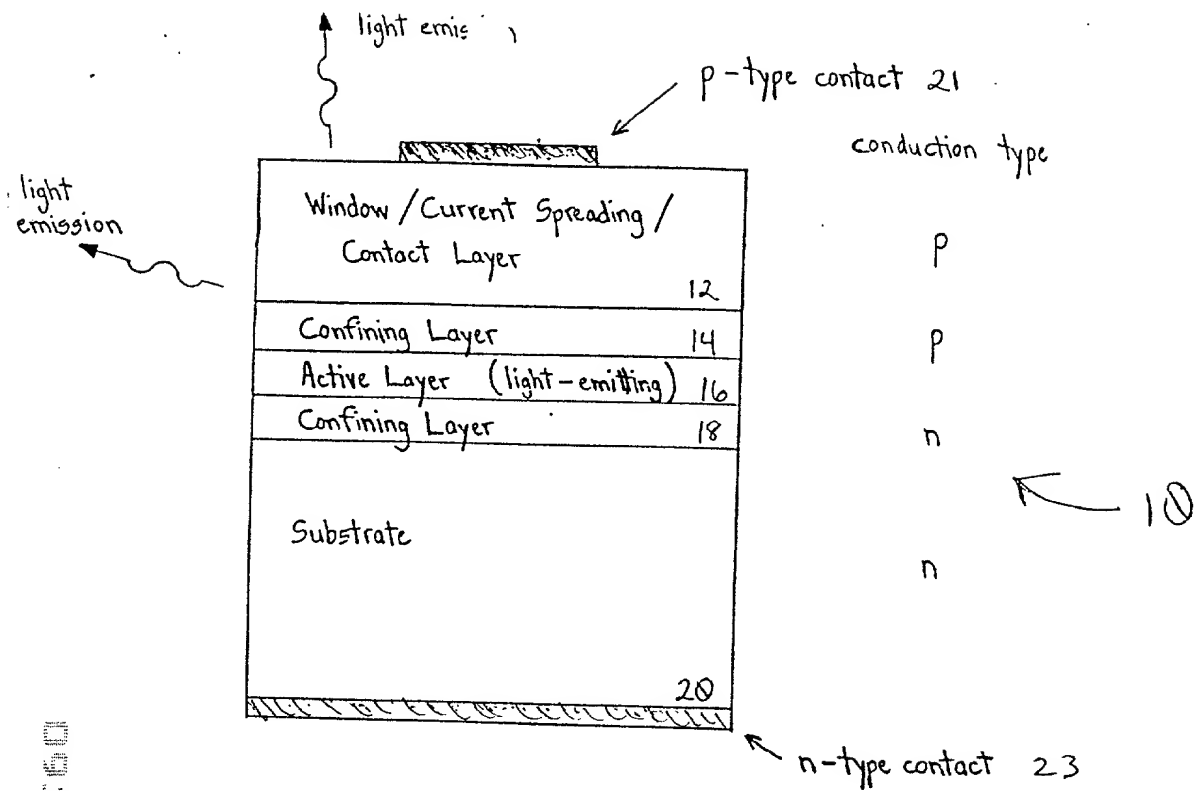 light
p-type contact 21
conduction type
light
emission
Window / Current Spreading /
Contact Layer
12
p
Confining Layer 14
p
Active Layer (light-emitting) 16
Confining Layer 18
n
10
Substrate
n
20
n-type contact 23